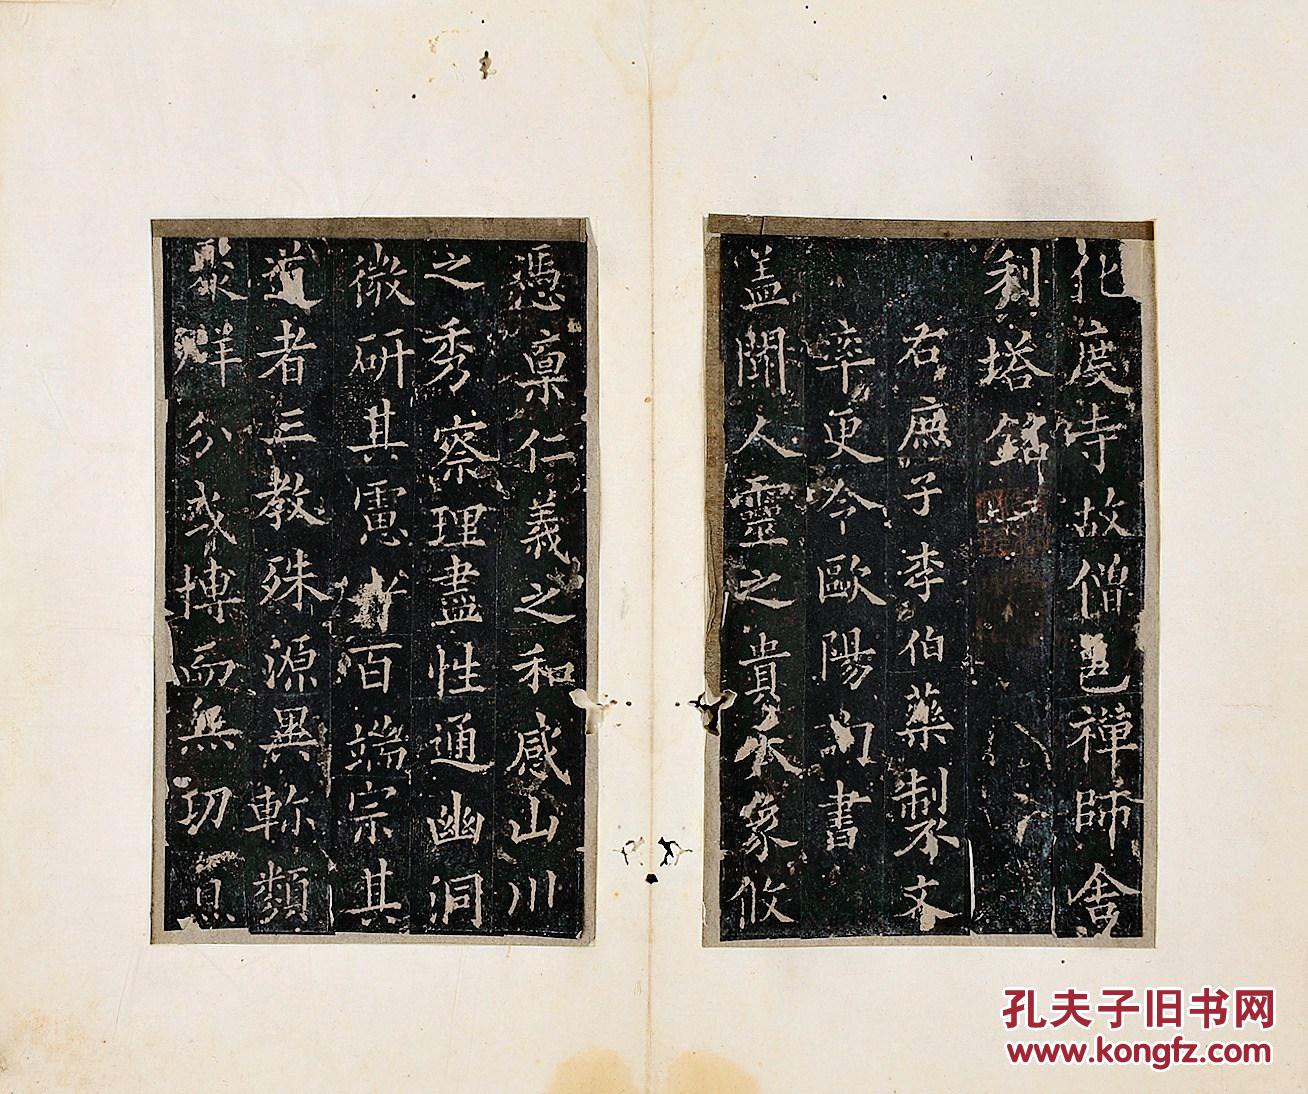 化度寺故僧邕禪師舍
利塔銘
右庶子李伯藥製文
率更令歐陽詢書
盖聞人靈之貴象攸
憑稟仁義之和感山川
之秀察理盡性通幽洞
微研其慮者百端宗其
道者三教殊源異軫類
聚群分或博而無功
孔夫子旧书网
www.kongfz.com